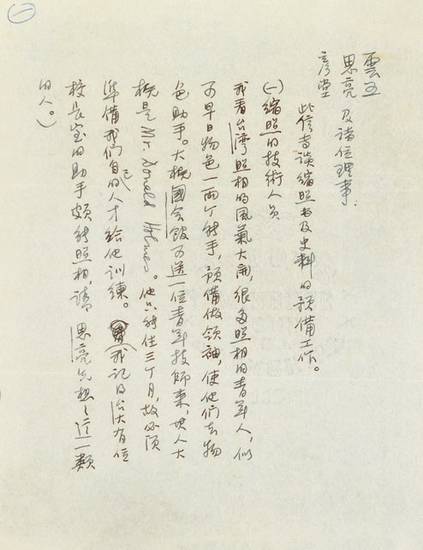 雲五
思亮 及諸位理事:
彥堂
此信專談縮照書及史料的預備工作。
(一)縮照的技術人員
我看台灣照相的風氣大開,很多照相的青年人,似
可早日物色一兩个能手,預備做領袖,使他們去物
色助手。大概國會館可送一位青年技師來,其人大
概是Mr. Donald Holmes。他只能住三个月,故必須
準備我們自己的人才給他訓練。(我記得台大有位
校長室的助手頗能照相,請思亮兄想想這一類
的人。)
一